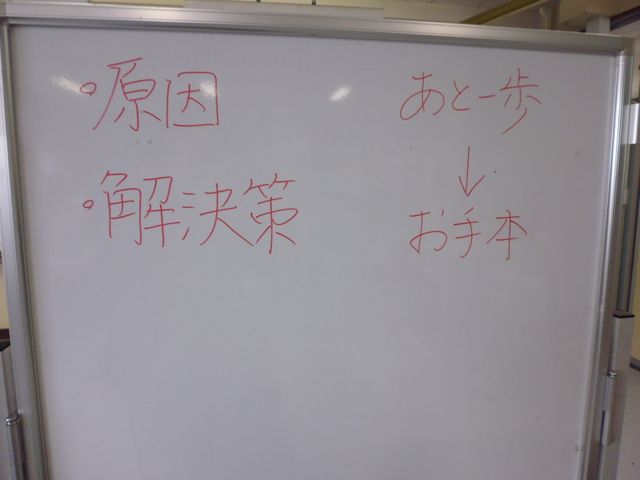 ・原因
・解決策
あと一歩
↓
お手本